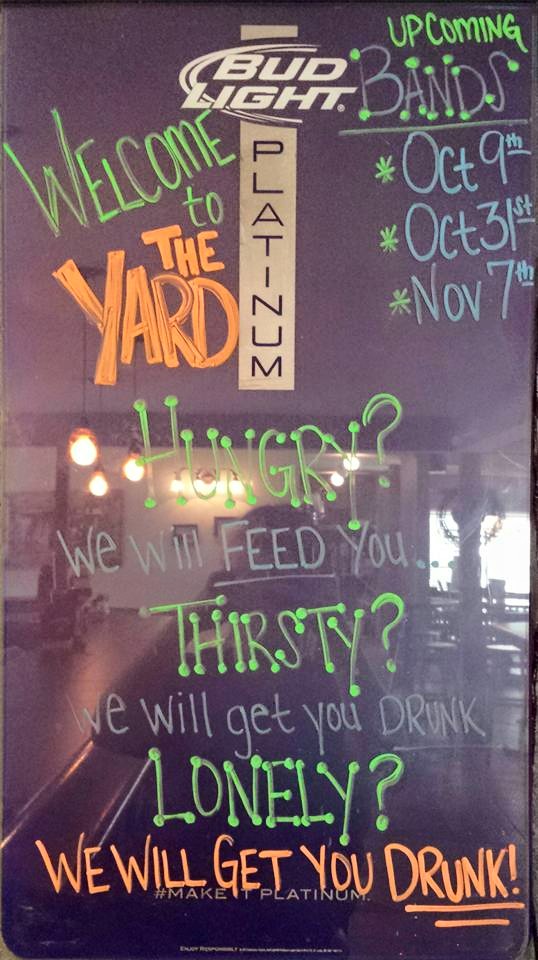 BUD
LIGHT.
PLATINUM
UPCOMING
BANDS
* Oct 9th
* Oct 31st
* Nov 7th
WELCOME
to
THE
YARD
HUNGRY?
We will FEED You...
THIRSTY?
We will get you DRUNK
LONELY?
WE WILL GET YOU DRUNK!
#MAKE IT PLATINUM.
ENJOY RESPONSIBLY